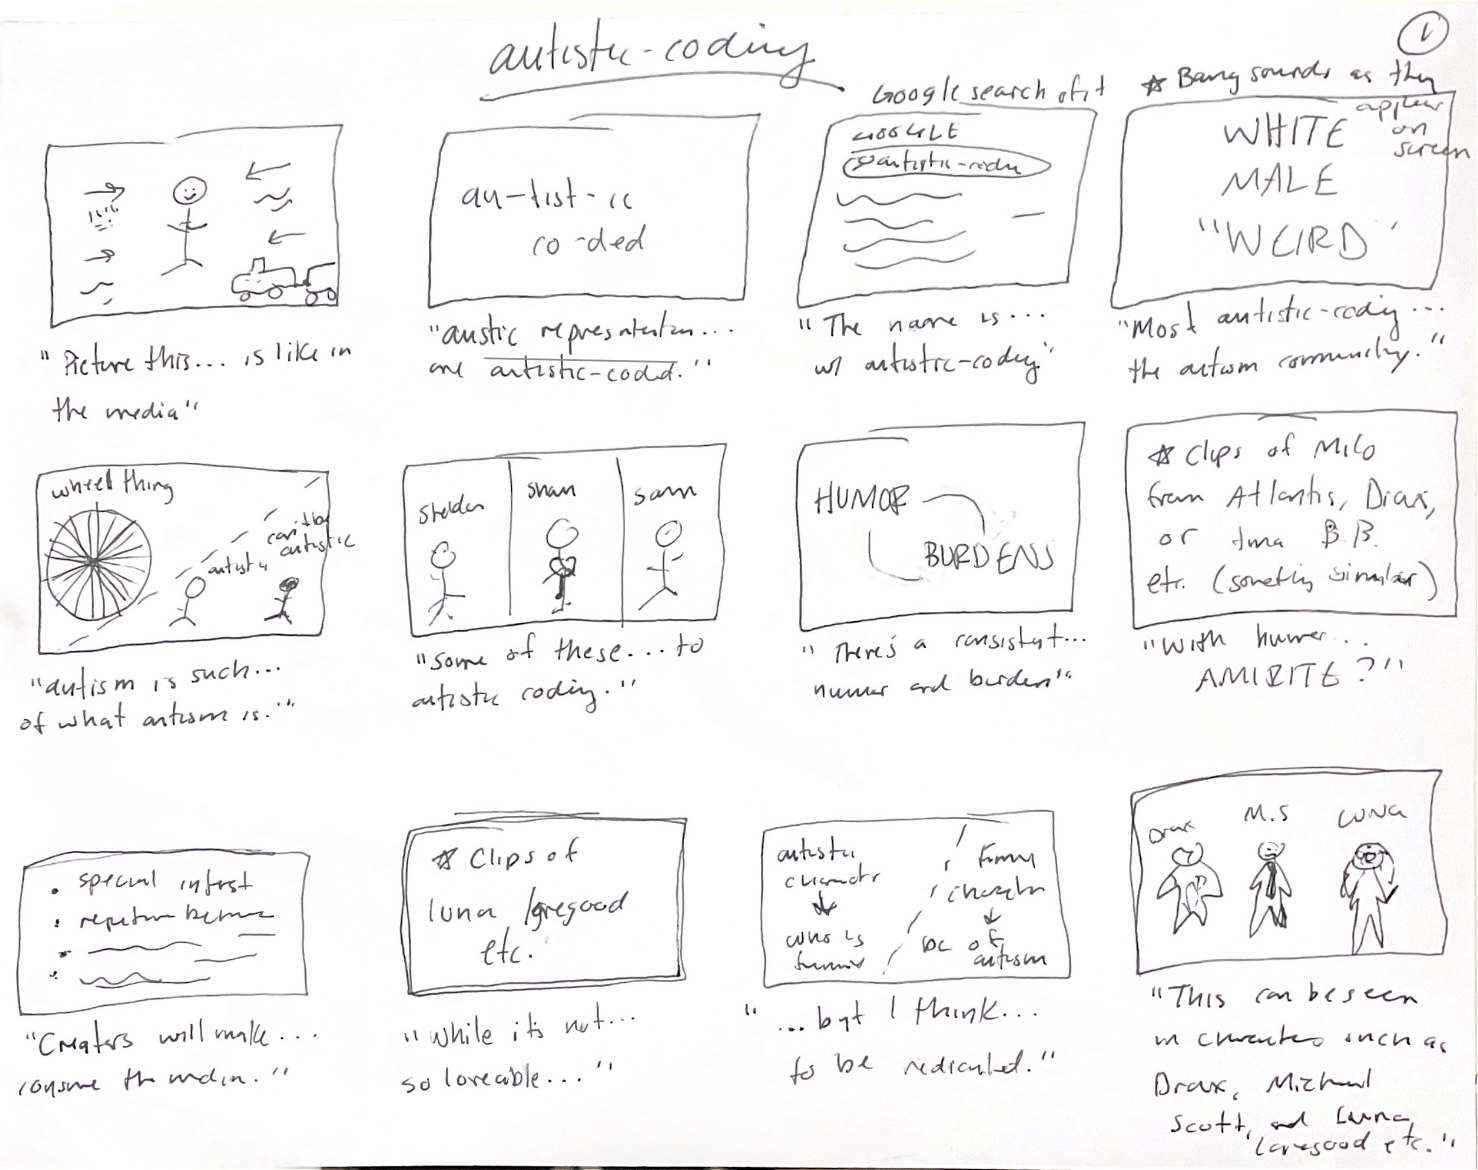 autistic-coding
1
"Picture this... is like in
the media"
au-tist-ic
co-ded
"austic representation...
are autistic-coded."
Google search of it
GOOGLE
autistic-codin
"The name is...
w/ autistic-coding"
☆ Bang sounds as they
appear
on
screen
WHITE
MALE
"WEIRD"
"Most autistic-coding...
the autism community."
wheel thing
autistic
can't be
autistic
"autism is such...
of what autism is."
Sheldon
Shaun
Sam
"Some of these... to
autistic coding."
HUMOR
BURDENS
"There's a consistent...
humor and burden"
☆ Clips of Milo
from Atlantis, Drax,
or Tina B.B.
etc. (something similar)
"With humor...
AMIRITE?"
• special intrst
"Creators will make...
consume the media."
☆ Clips of
luna lovegood
etc.
"While it's not...
so loveable..."
autistic
character
who is
funny
Funny
character
bc of
autism
"...but I think...
to be rediculed."
Drax
M.S
LUNA
"This can be seen
in characters such as
Drax, Michael
Scott, and Luna
Lovegood etc."